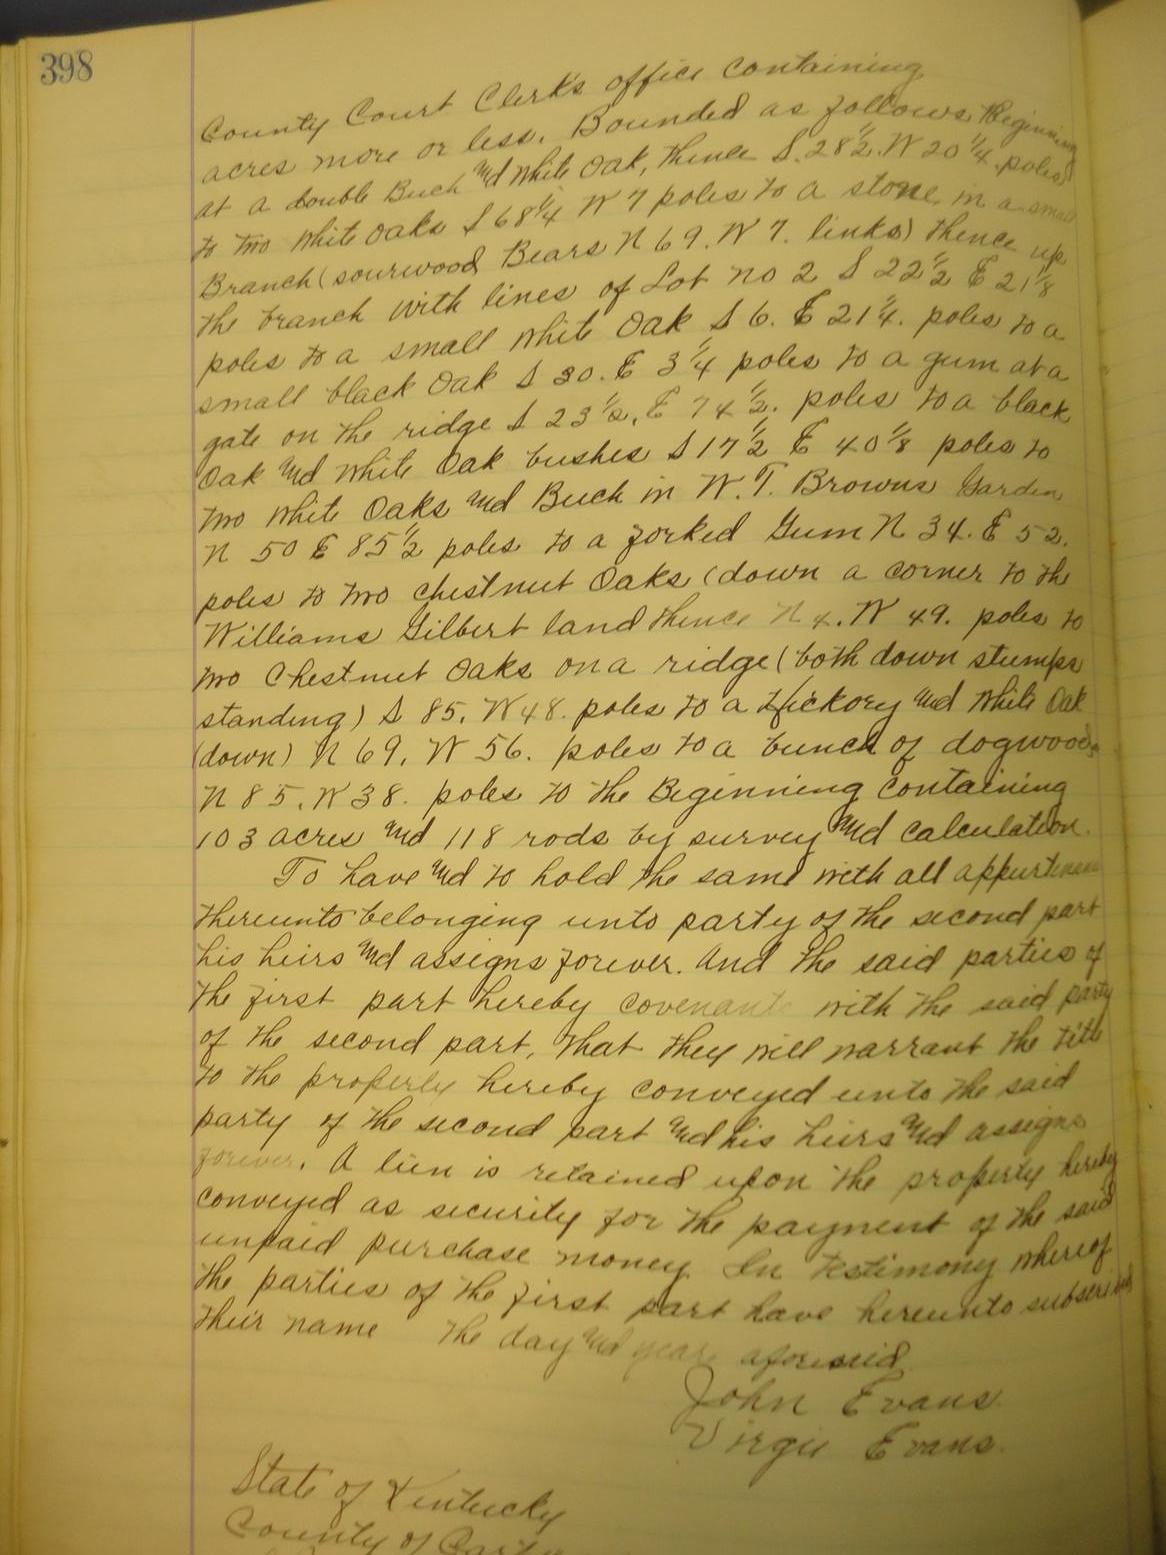 398
County Court Clerks office containing
acres more or less. Bounded as follows Beginning
at a double Buch and White Oak, thence S. 28 1/2. W 20 1/4. poles
to two white oaks S 68 1/4 W 7 poles to a stone in a small
Branch (sourwood Bears N 69. W 7. links) thence up
the branch with lines of Lot no 2 S 22 1/2 E 21 1/8
poles to a small white Oak S 6. E 21 1/4. poles to a
small black Oak S 30. E 3 1/4 poles to a gum at a
gate on the ridge S 23 1/2. E 74 1/2. poles to a black
Oak and white Oak bushes S 17 1/2 E 40 1/8 poles to
two white Oaks and Buch in W. T. Browns Garden
N 50 E 85 1/2 poles to a forked Gum N 34. E 52.
poles to two chestnut Oaks (down a corner to the
Williams Gilbert land thence N 4. W 49. poles to
two Chestnut Oaks on a ridge (both down stumps
standing) S 85. W 48. poles to a Hickory and white Oak
(down) N 69. W 56. poles to a bunch of dogwoods
N 85. W 38. poles to the Beginning containing
103 acres and 118 rods by survey and calculation.
To have and to hold the same with all appurtenan
thereunto belonging unto party of the second part
his heirs and assigns forever. And the said parties of
the first part hereby covenants with the said party
of the second part, that they will warrant the title
to the property hereby conveyed unto the said
party of the second part and his heirs and assigns
forever. A lien is retained upon the property hereby
conveyed as security for the payment of the said
unpaid purchase money. In testimony whereof
the parties of the first part have hereunto subscribed
their name the day and year aforesaid
John Evans.
Virgie Evans.
State of Kentucky
County of Carter